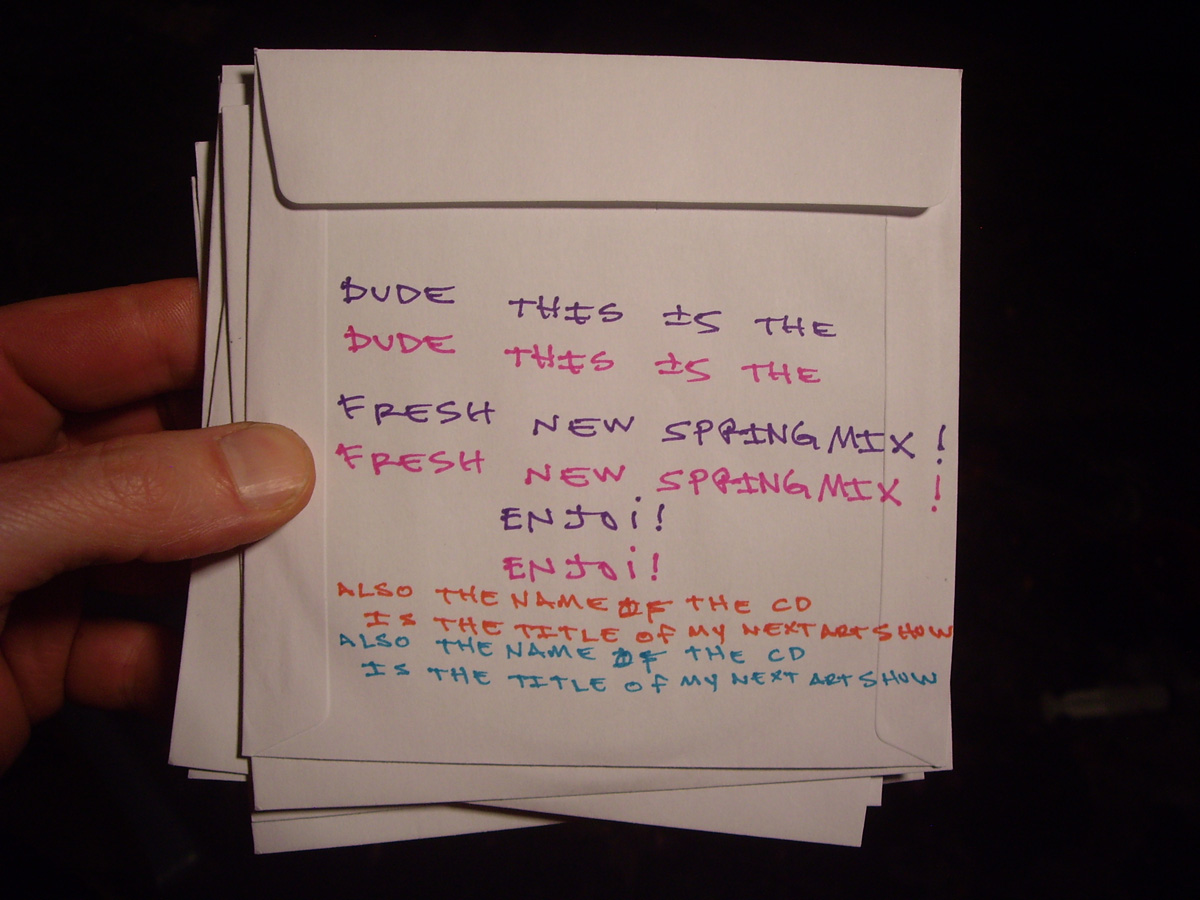 DUDE THIS IS THE
DUDE THIS IS THE
FRESH NEW SPRING MIX !
FRESH NEW SPRING MIX !
ENJOi!
ENJOi!
ALSO THE NAME OF THE CD
IS THE TITLE Of MY NEXT ART SHOW
ALSO THE NAME OF THE CD
IS THE TITLE Of MY NEXT ART SHOW